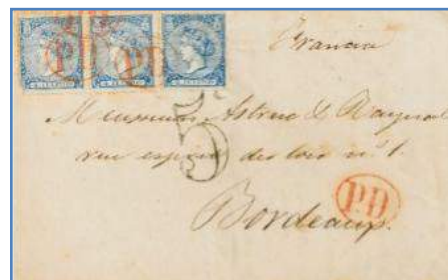 P.D P.D
Francia
5
Messieurs Astruc & Raynal
rue esprit des lois nº 1.
P.D
Bordeaux.